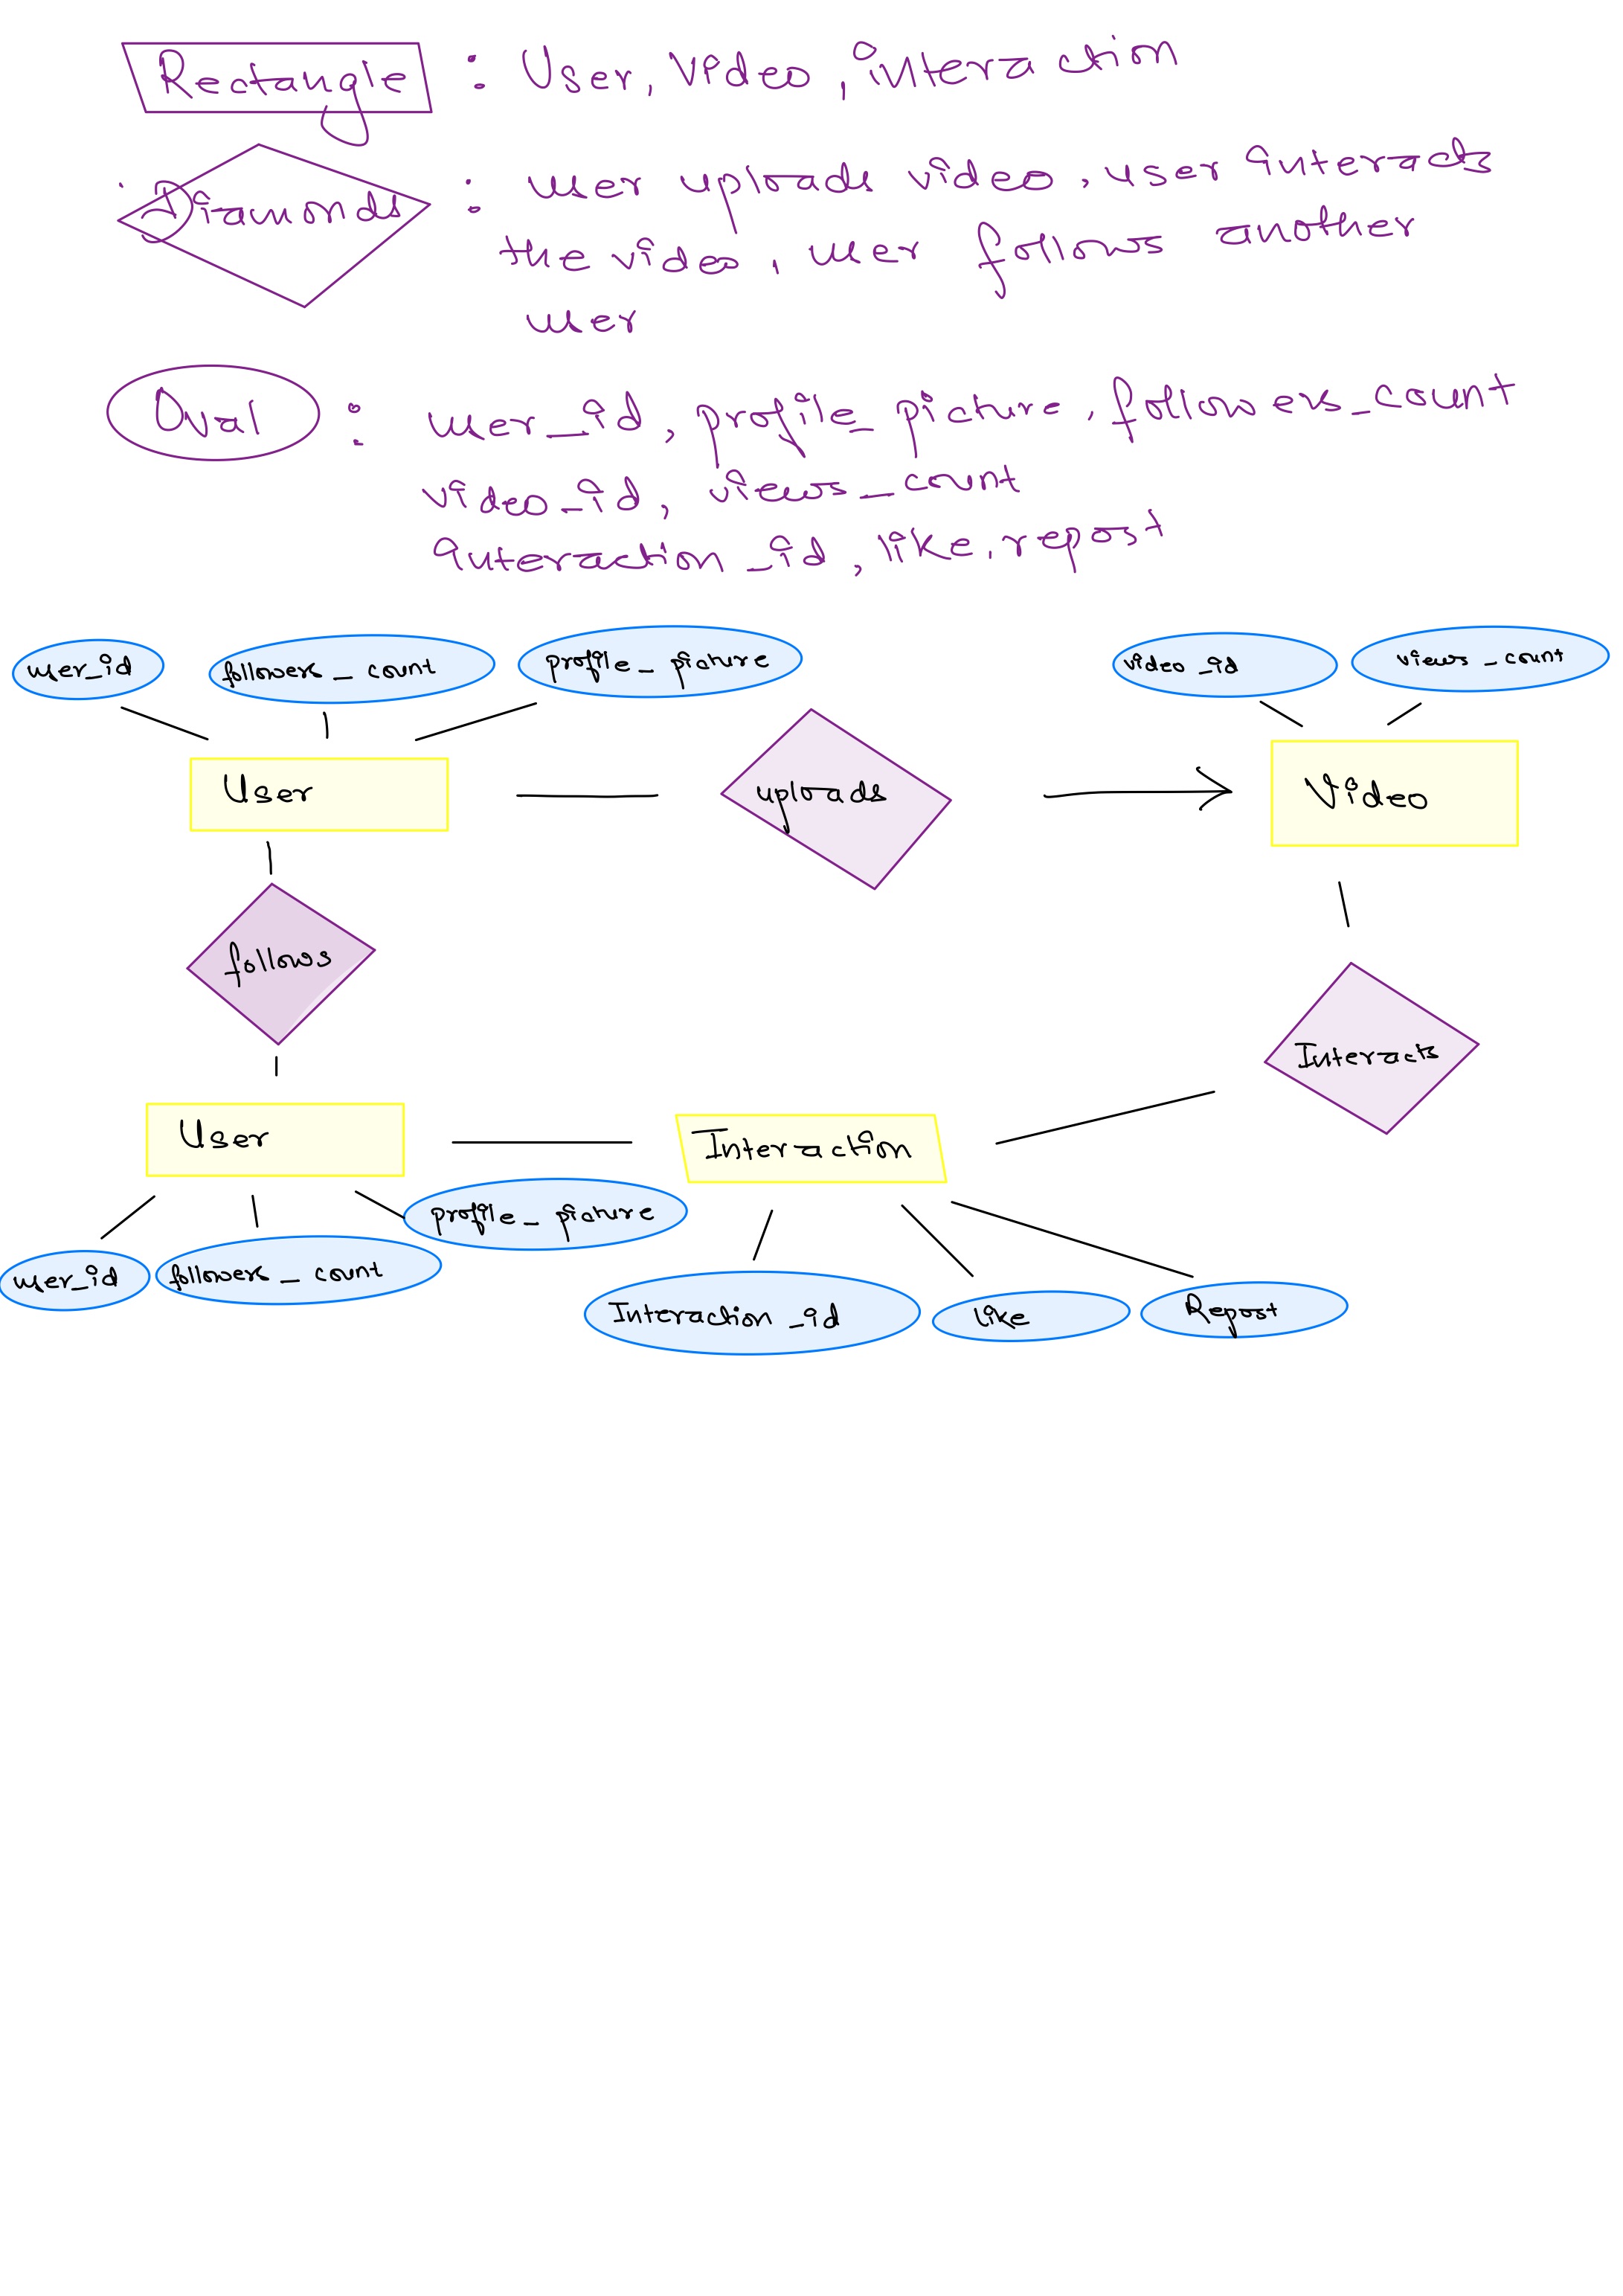 Rectangle : User, Video, interaction
Diamonds : user uploads video, user interacts
the video, user follows another
user
Oval : user_id, profile_picture, followers_count
video_id, views_count
interaction_id, like, repost
user_id followers_count profile_picture video_id views_count
User uploads Video
follows
Interacts
User Interaction
profile_picture
user_id followers_count
Interaction_id like Repost